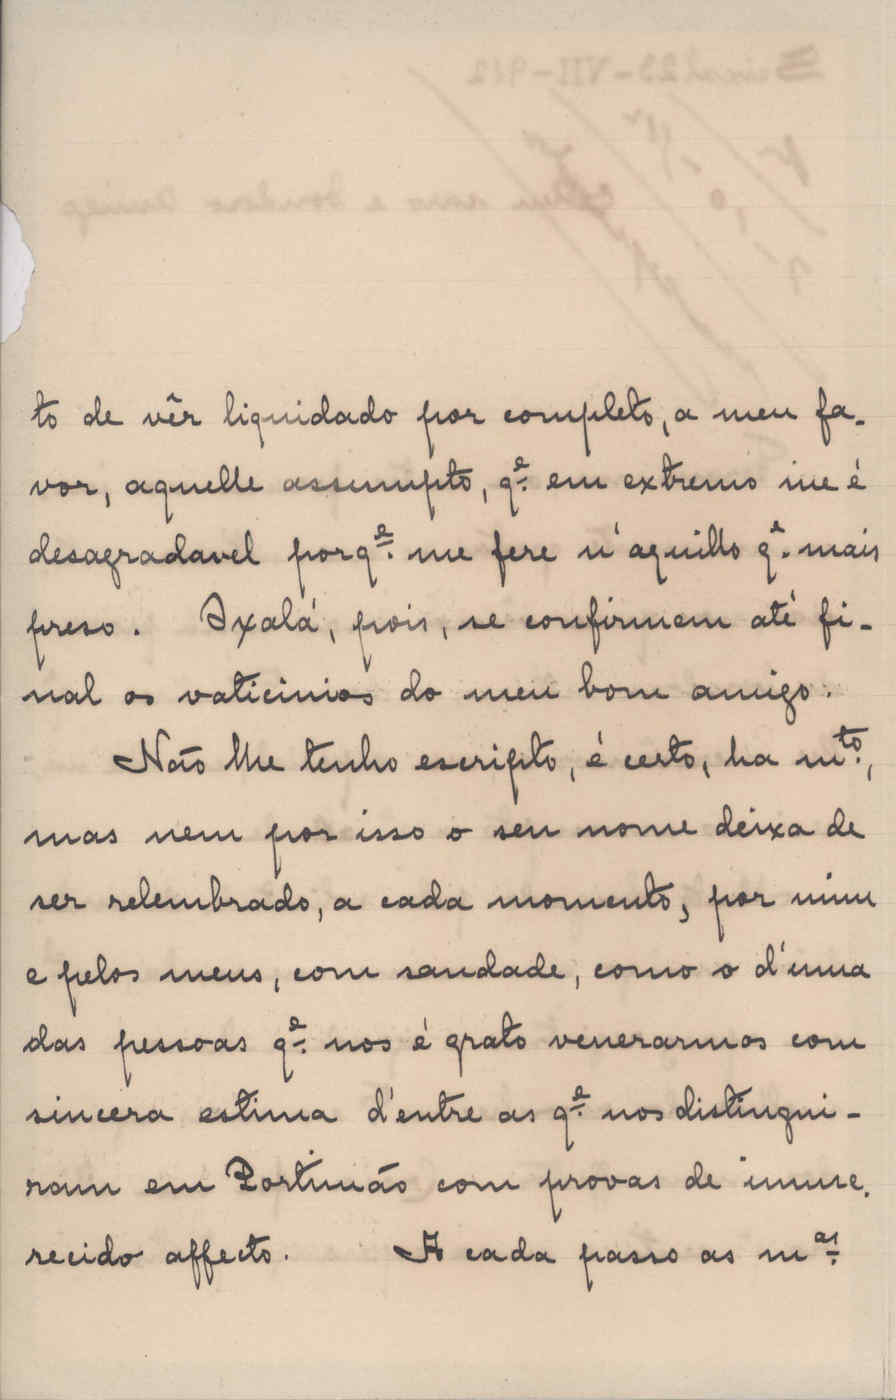 to de vêr liquidado por completo, a meu fa-
vor, aquelle assumpto, q.e em extremo me é
desagradavel porq.e me fere n'aquillo q.e mais
preso. Oxalá, pois, se confirmem até fi-
nal os vaticinios do meu bom amigo.
Não lhe tenho escripto, é certo, ha m.to,
mas nem por isso o seu nome deixa de
ser relembrado, a cada momento, por mim
e pelos meus, com saudade, como o d'uma
das pessoas q.e nos é grato venerarmos com
sincera estima d'entre as q.e nos distingui-
ram em Portimão com provas de imme-
recido affecto. A cada passo as m.as